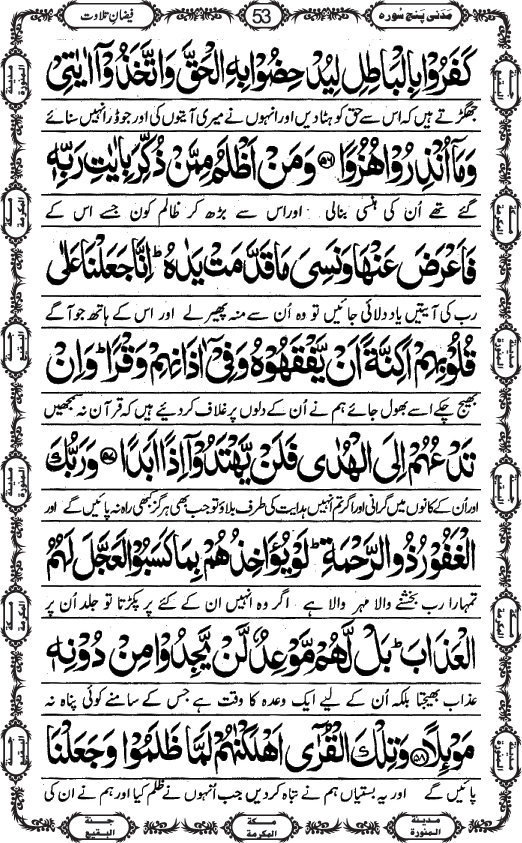 مَدَنی پنج سُورہ
53
فیضانِ تلاوت
كَفَرُوْا بِالْبَاطِلِ لِیُدْحِضُوْا بِهِ الْحَقَّ وَ اتَّخَذُوْۤا اٰیٰتِیْ
جھگڑتے ہیں کہ اس سے حق کو ہٹادیں اور انہوں نے میری آیتوں کی اور جو ڈر انہیں سنائے
وَ مَاۤ اُنْذِرُوْا هُزُوًا ﴿۵۶﴾ وَ مَنْ اَظْلَمُ مِمَّنْ ذُكِّرَ بِاٰیٰتِ رَبِّهٖ
گئے تھے اُن کی ہنسی بنالی اور اس سے بڑھ کر ظالم کون جسے اس کے
فَاَعْرَضَ عَنْهَا وَ نَسِیَ مَا قَدَّمَتْ یَدٰهُ ؕ اِنَّا جَعَلْنَا عَلٰی
رب کی آیتیں یاد دلائی جائیں تو وہ اُن سے منہ پھیرلے اور اس کے ہاتھ جو آگے
قُلُوْبِهِمْ اَكِنَّةً اَنْ یَّفْقَهُوْهُ وَ فِیْۤ اٰذَانِهِمْ وَقْرًا ؕ وَ اِنْ
بھیج چکے اسے بھول جائے ہم نے اُن کے دلوں پر غلاف کردیئے ہیں کہ قرآن نہ سمجھیں
تَدْعُهُمْ اِلَی الْهُدٰی فَلَنْ یَّهْتَدُوْۤا اِذًا اَبَدًا ﴿۵۷﴾ وَ رَبُّكَ
اور اُن کے کانوں میں گرانی اور اگر تم انہیں ہدایت کی طرف بلاؤ تو جب بھی ہرگز کبھی راہ نہ پائیں گے اور
الْغَفُوْرُ ذُو الرَّحْمَةِ ؕ لَوْ یُؤَاخِذُهُمْ بِمَا كَسَبُوْا لَعَجَّلَ لَهُمُ
تمہارا رب بخشنے والا مہر والا ہے اگر وہ انہیں ان کے کئے پر پکڑتا تو جلد اُن پر
الْعَذَابَ ؕ بَلْ لَّهُمْ مَّوْعِدٌ لَّنْ یَّجِدُوْا مِنْ دُوْنِهٖ
عذاب بھیجتا بلکہ اُن کے لیے ایک وعدہ کا وقت ہے جس کے سامنے کوئی پناہ نہ
مَوْىِٕلًا ﴿۵۸﴾ وَ تِلْكَ الْقُرٰۤی اَهْلَكْنٰهُمْ لَمَّا ظَلَمُوْا وَ جَعَلْنَا
پائیں گے اور یہ بستیاں ہم نے تباہ کردیں جب اُنہوں نے ظلم کیا اور ہم نے ان کی
مدینة المنورة
مكة المكرمة
جنة البقيع